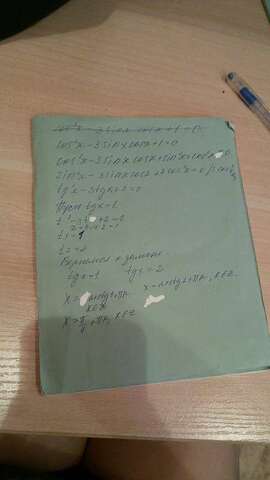 cos²x - 3 sin x cos x + 1 = 0
cos²x - 3 sin x cos x + 1 = 0
cos²x - 3 sin x cos x + sin²x + cos²x = 0
sin²x - 3 sin x cos x + 2 cos²x = 0 | : cos²x
tg²x - 3 tg x + 2 = 0
Пусть tg x = t
t² - 3t + 2 = 0
t₁ = 1
t₂ = 2
Вернемся к замене
tg x = 1 tg x = 2
x = arctg 1 + πk, k ∈ Z x = arctg 2 + πk, k ∈ Z
x = π/4 + πk, k ∈ Z